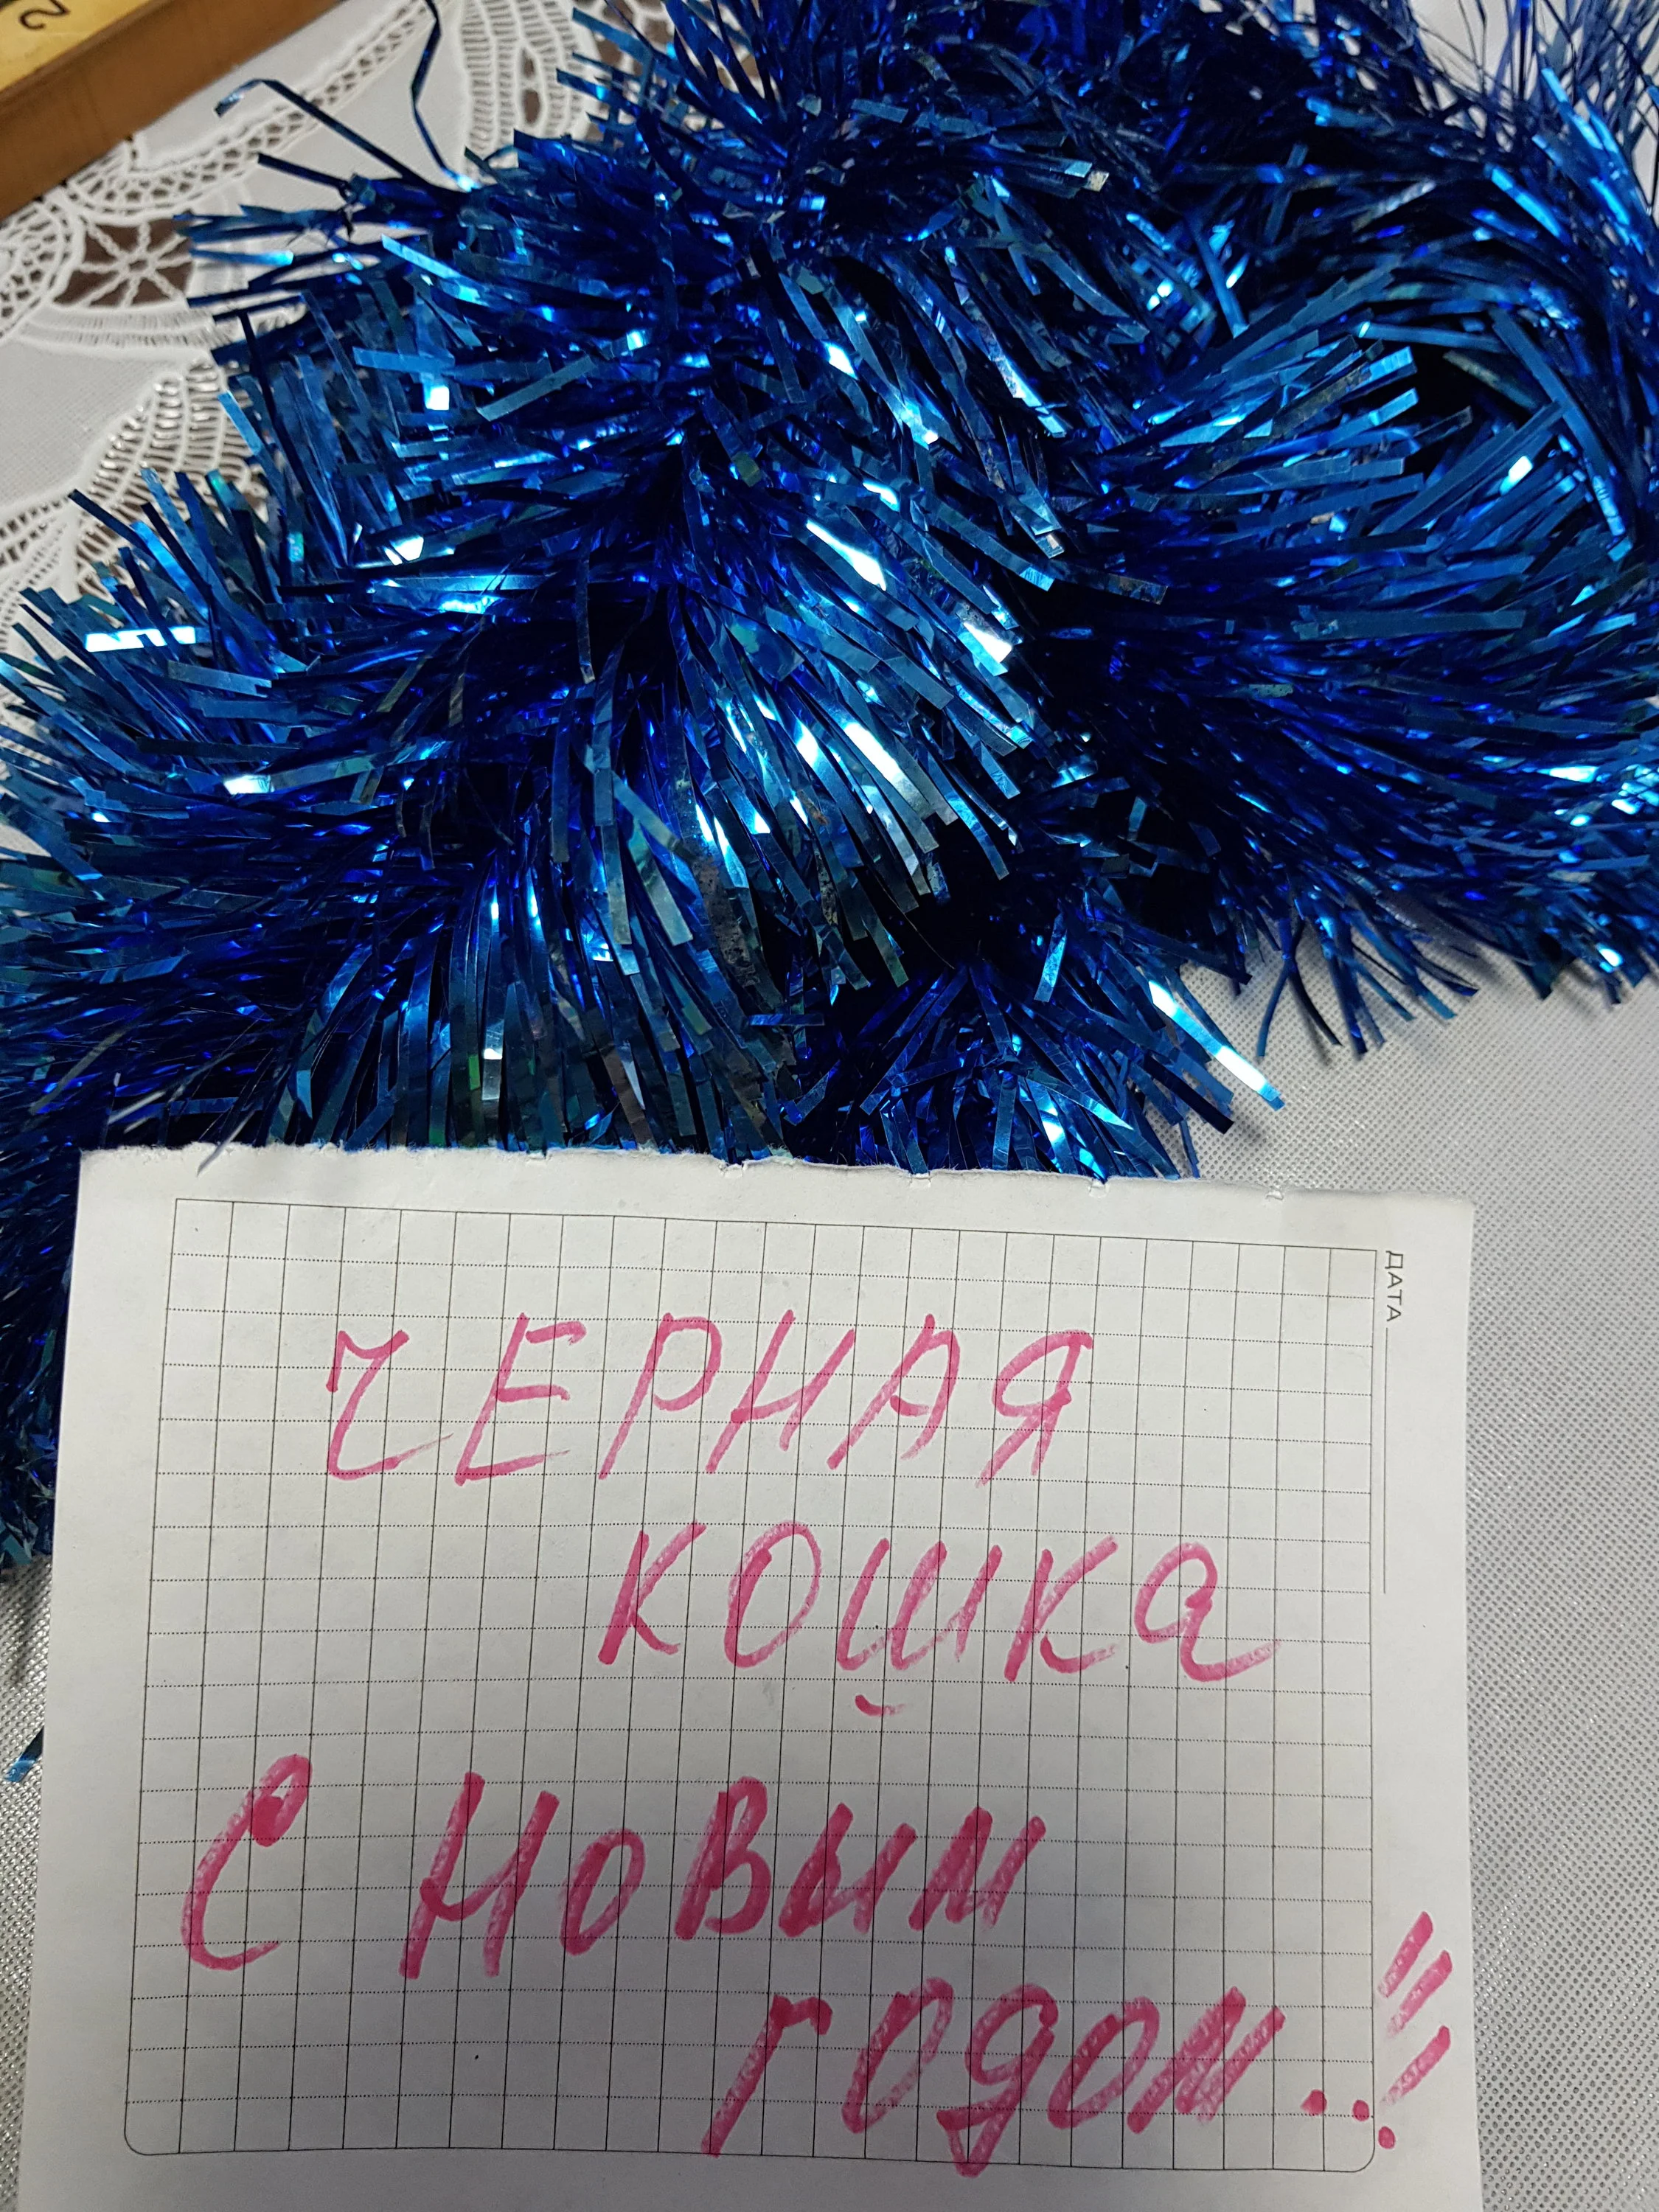 2
ДАТА
ЧЕРНАЯ
КОШКА
С НОВЫМ
ГОДОМ...!!!